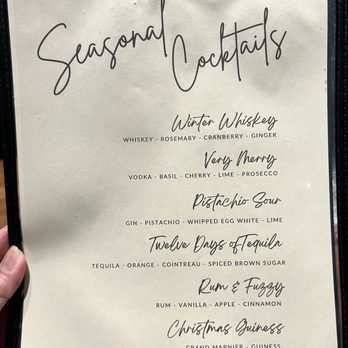 Seasonal
Cocktails
Winter Whiskey
WHISKEY - ROSEMARY - CRANBERRY - GINGER
Very Merry
VODKA - BASIL - CHERRY - LIME - PROSECCO
Pistachio Sour
GIN - PISTACHIO - WHIPPED EGG WHITE - LIME
Twelve Days of Tequila
TEQUILA - ORANGE - COINTREAU - SPICED BROWN SUGAR
Rum & Fuzzy
RUM - VANILLA - APPLE - CINNAMON
Christmas Guiness
GRAND MARNIER - GUINESS